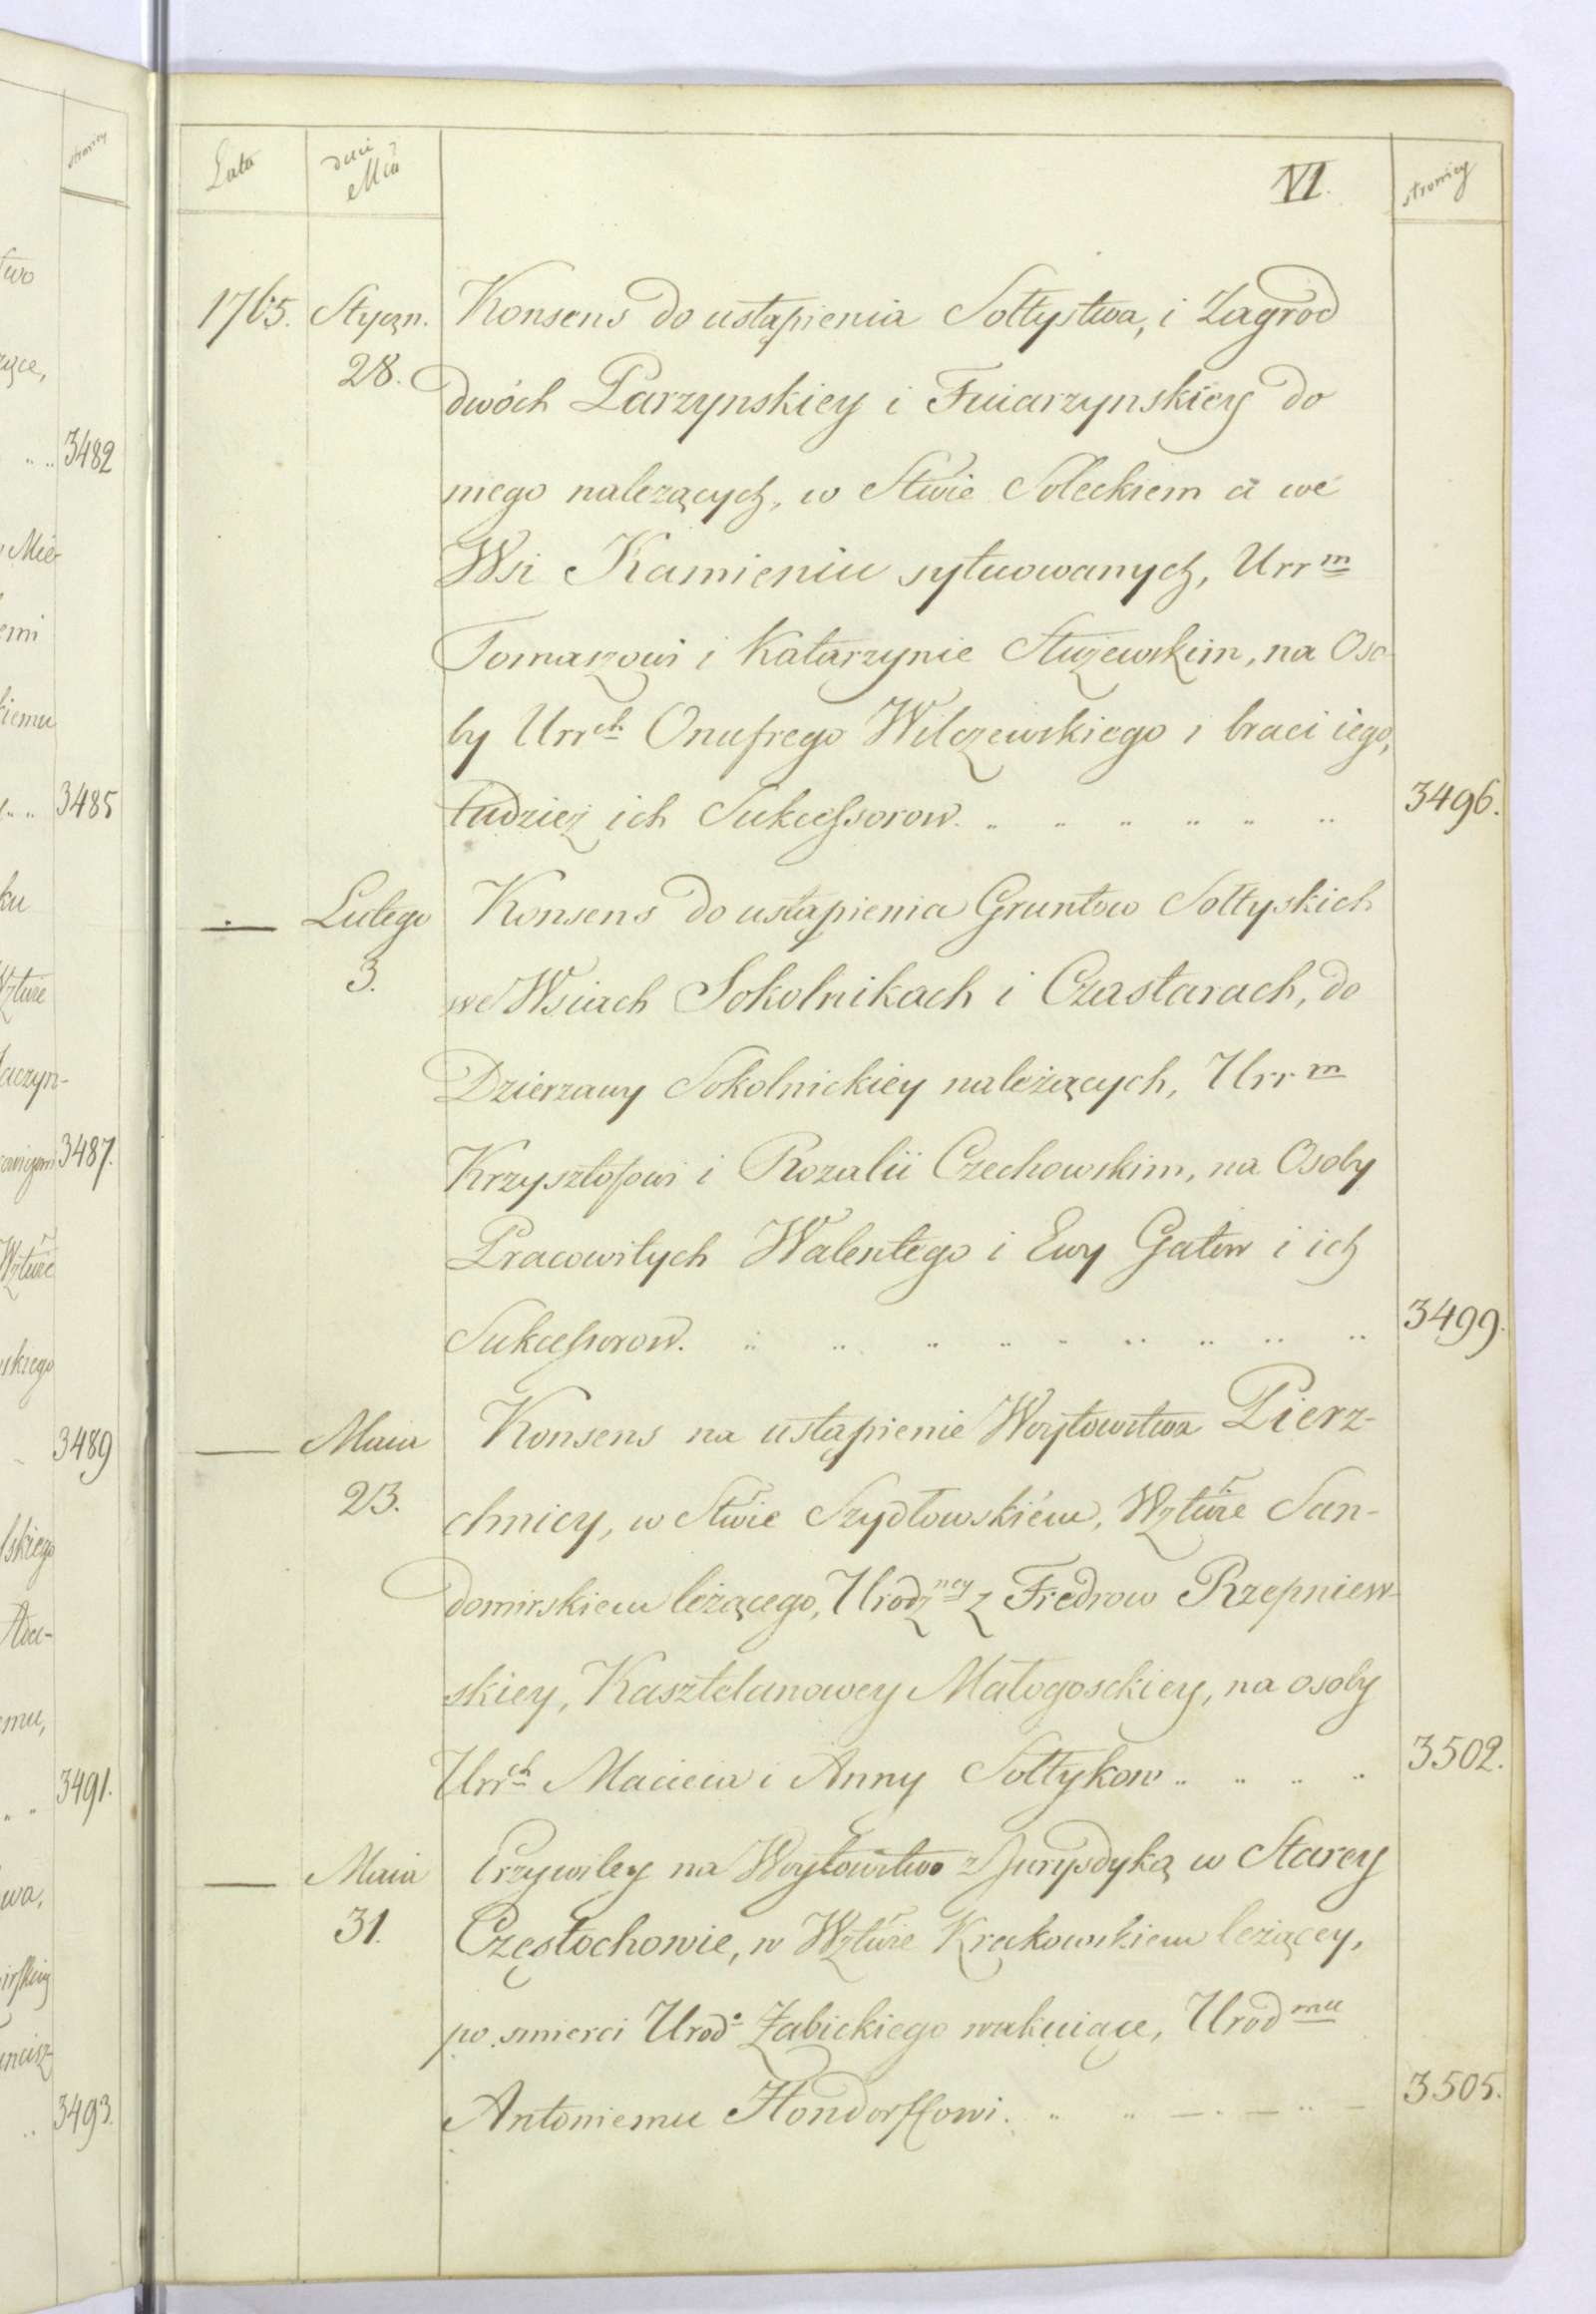 stronicy
two
3482
Mie-
emi
kiemu
3485
ku
Wztwie
3487.
Wztwie
skiego
3489
skiego
emu,
3491.
wa,
3493.
Lata dnie Mca VI. stronicy
1765. Styczn. Konsens do ustąpienia Sołtystwa, i Zagrod
28. dwóch Parzynskiey i Fuiarzynskiey do
niego należących, w Stwie Soleckiem a we
Wsi Kamieniu sytuowanych, Urrm
Tomaszowi i Katarzynie Służewskim, na Oso-
by Urrch Onufrego Wilczewskiego i braci iego,
tudzież ich Sukcessorow. 3496.
— Lutego Konsens do ustąpienia Gruntow Sołtyskich
3. we Wsiach Sokolnikach i Czastarach, do
Dzierzawy Sokolnickiey należących, Urrm
Krzysztofowi i Rozalii Czechowskim, na Osoby
Pracowitych Walentego i Ewy Gałow i ich
Sukcessorow. 3499.
— Maia Konsens na ustąpienie Woytowstwa Pierz-
23. chnicy, w Stwie Szydłowskiém, Wztwie San-
domirskiem leżącego, Urodzney z Fredrow Rzepniew-
skiey, Kasztelanowey Małogosckiey, na osoby
Urrch Macieia i Anny Sołtykow 3502.
— Maia Przywiley na Woytowstwo z Jurysdyką w Starey
31. Częstochowie, w Wztwie Krakowskiem leżącey,
po smierci Urod. Żabickiego wakuiące, Urodmu
Antoniemu Hondorffowi. 3505.